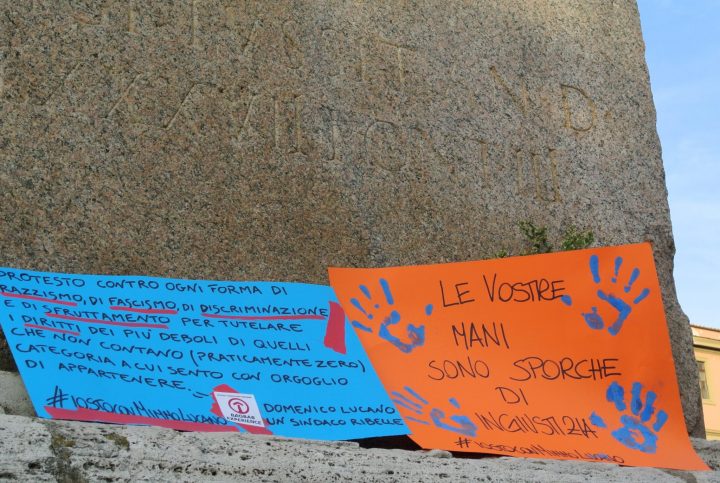 PROTESTO CONTRO OGNI FORMA DI
RAZZISMO, DI FASCISMO, DI DISCRIMINAZIONE
E DI SFRUTTAMENTO PER TUTELARE
I DIRITTI DEI PIÙ DEBOLI DI QUELLI
CHE NON CONTANO (PRATICAMENTE ZERO)
CATEGORIA A CUI SENTO CON ORGOGLIO
DI APPARTENERE.
#IOSTOCONMIMMOLUCANO
BAOBAB
EXPERIENCE
DOMENICO LUCANO
UN SINDACO RIBELLE
LE VOSTRE
MANI
SONO SPORCHE
DI
INGIUSTIZIA
#IOSTOCONMIMMOLUCANO